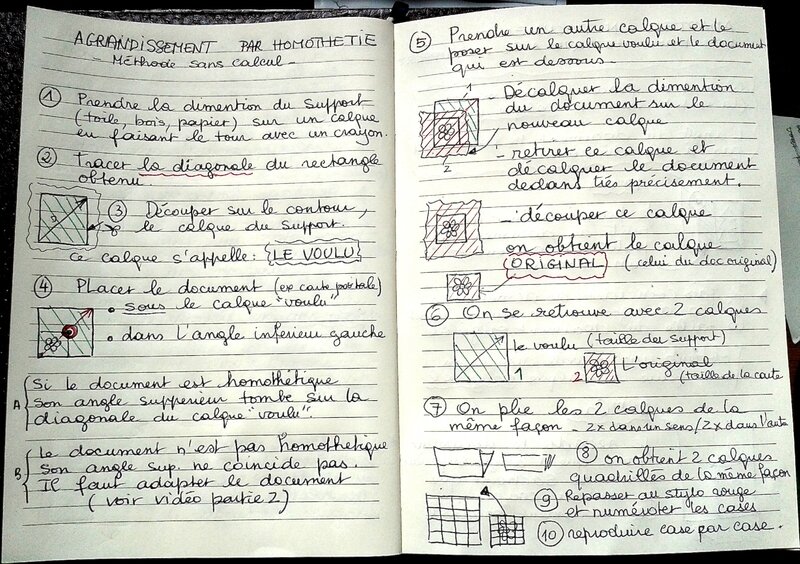 AGRANDISSEMENT PAR HOMOTHETIE
- Méthode sans calcul -
① Prendre la dimention du support
(toile, bois, papier) sur un calque
en faisant le tour avec un crayon.
② Tracer la diagonale du rectangle
obtenu.
③ Découper sur le contour,
le calque du support.
ce calque s'appelle : LE VOULU
④ Placer le document (ex carte postale)
• sous le calque "voulu"
• dans l'angle inferieur gauche
A { Si le document est homothétique
son angle supperieur tombe sur la
diagonale du calque "voulu".
B { Le document n'est pas homothetique
Son angle sup. ne coincide pas.
Il faut adapter le document
(voir vidéo partie 2)
⑤ Prendre un autre calque et le
poser sur le calque voulu et le document
qui est dessous.
- Décalquer la dimention
du document sur le
nouveau calque
1
2
- retirer ce calque et
décalquer le document
dedans très précisement.
- découper ce calque
on obtient le calque
ORIGINAL (celui du doc original)
⑥ On se retrouve avec 2 calques
le voulu (taille du support)
1
2 L'original
(taille de la carte
⑦ On plie les 2 calques de la
même façon - 2x dans un sens/2x dans l'autre
⑧ on obtient 2 calques
quadrillés de la même façon
⑨ Repasser au stylo rouge
et numéroter les cases
⑩ reproduire case par case.